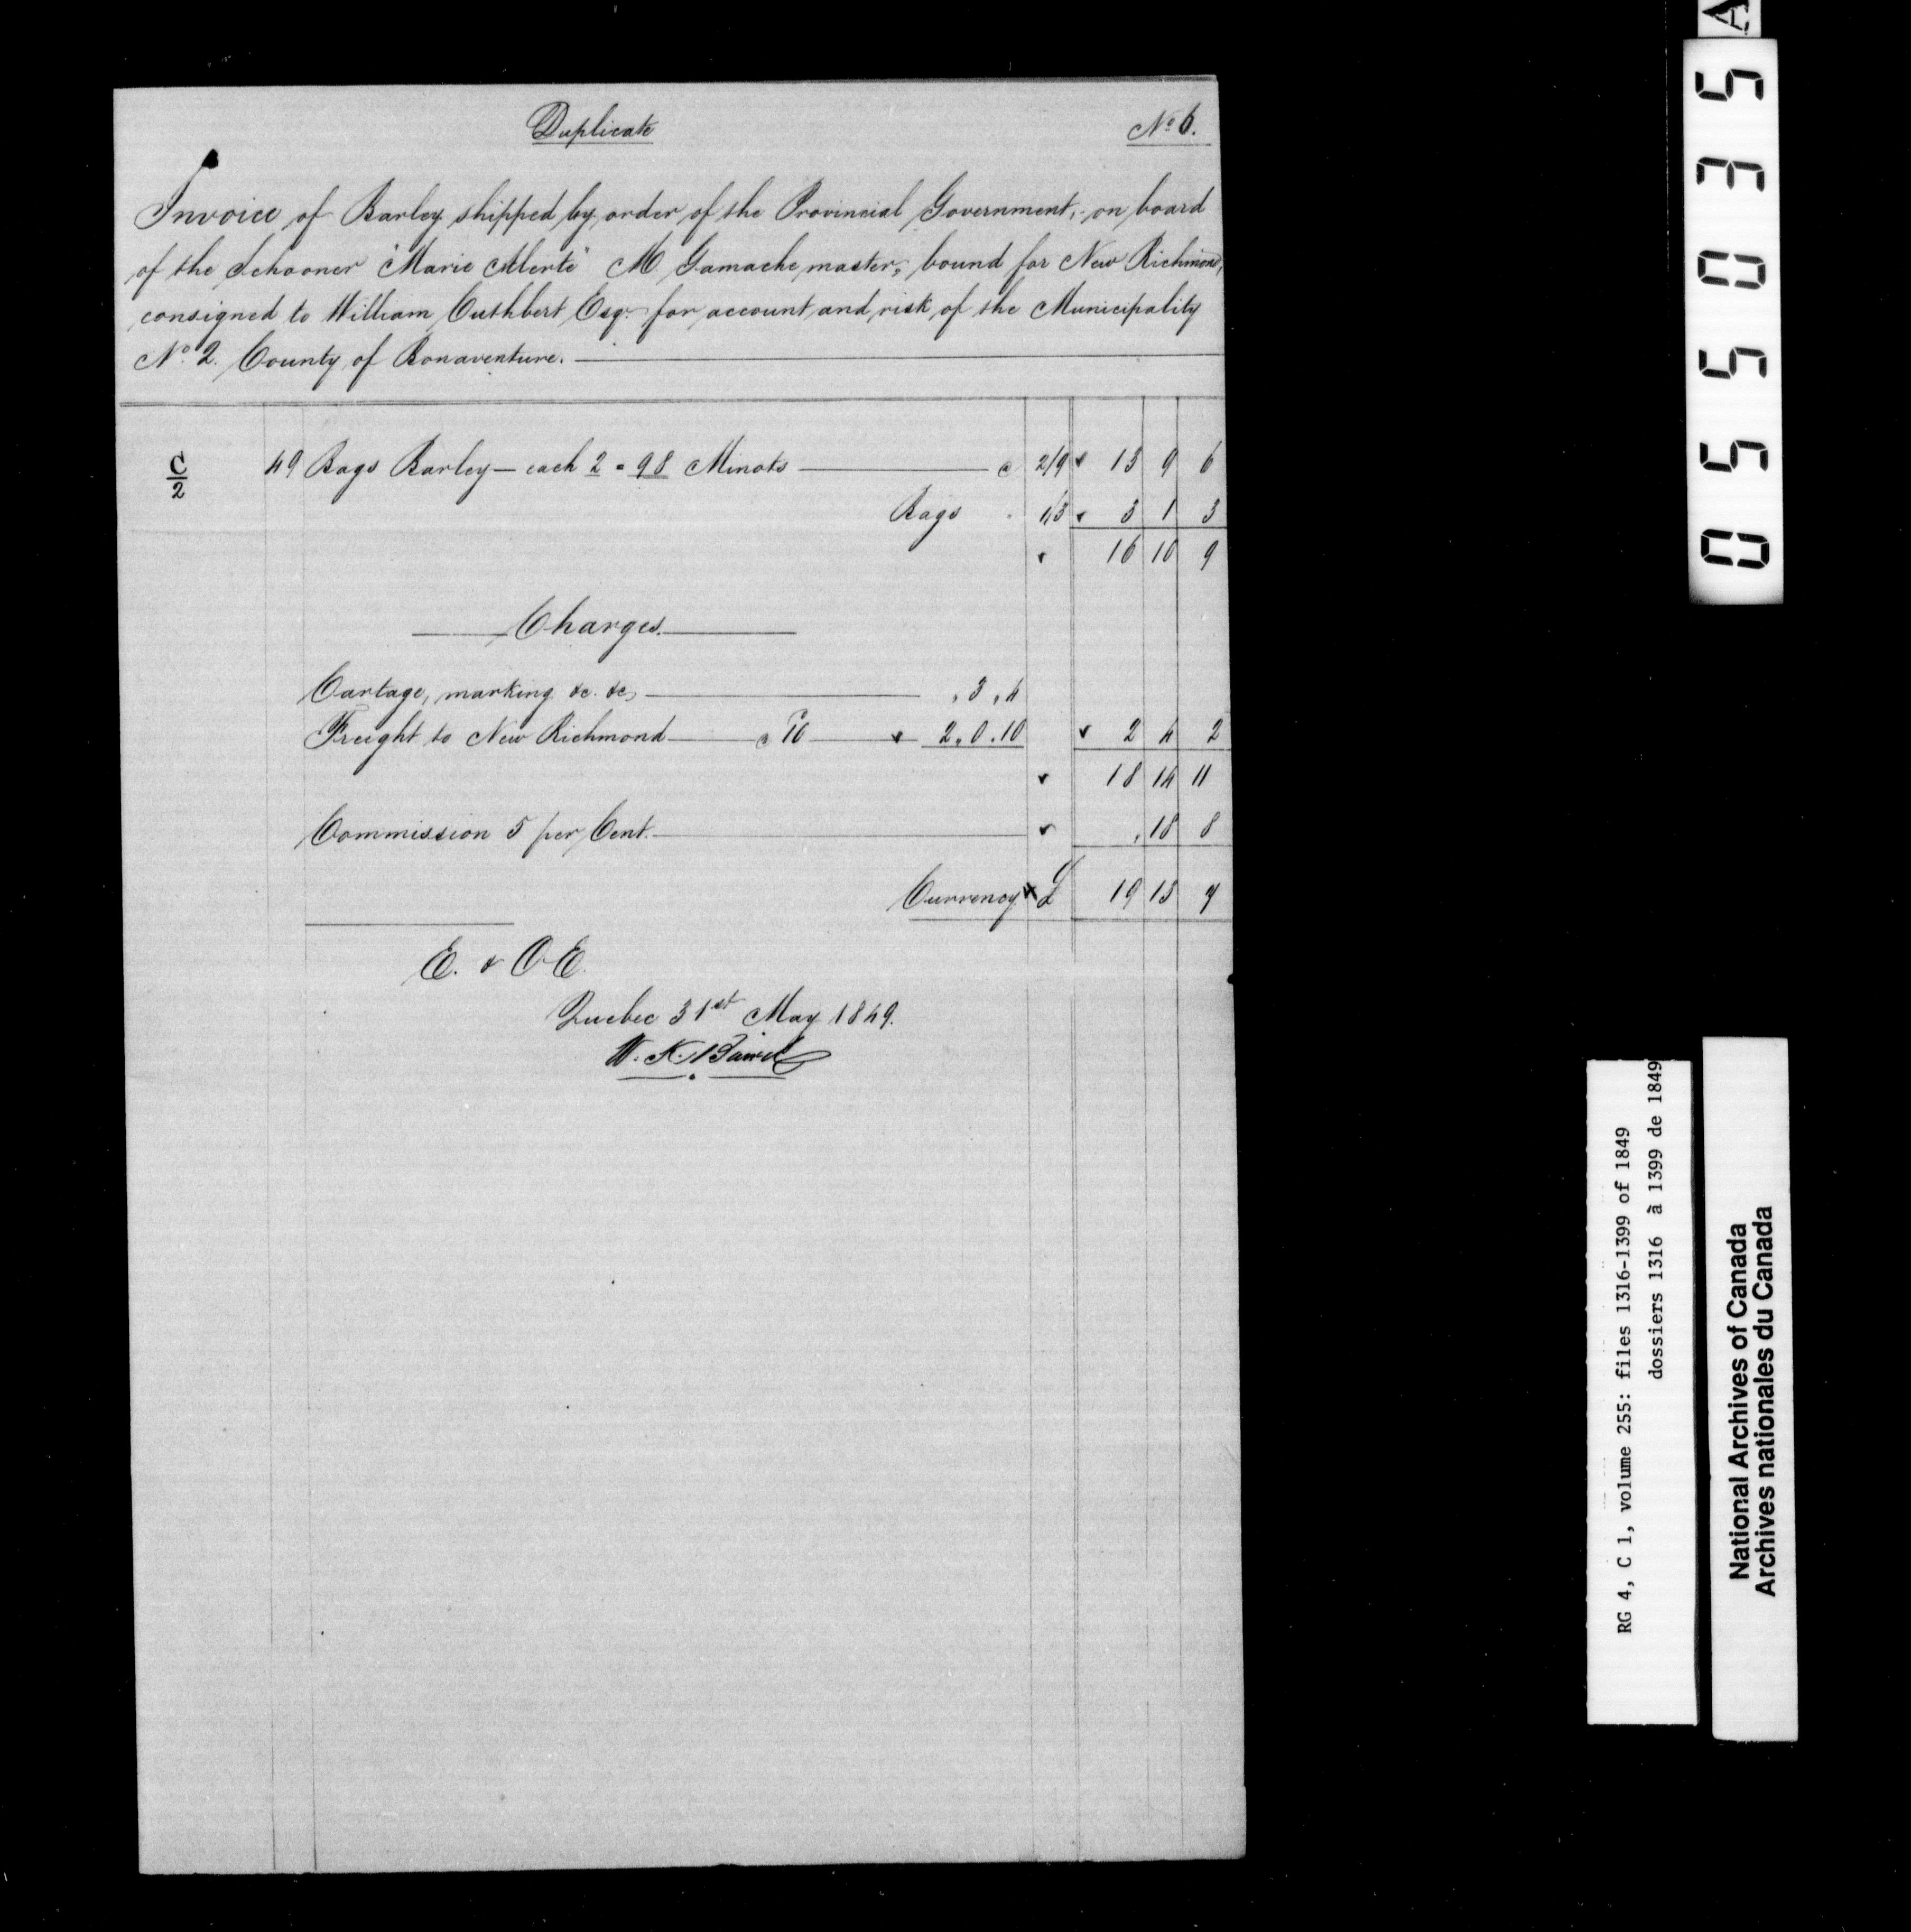 Duplicate
No 6.
Invoice of Barley shipped by order of the Provincial Government, on board
of the Schooner "Marie" M Gamache master, bound for New Richmond,
consigned to William Cuthbert Esqr. for account and risk of the Municipality
No. 2. County of Bonaventure.
C/2 49 Bags Barley — each 2 = 98 Minots @ 2/9 13 9 6
Bags 1/3 3 1 3
16 10 9
Charges.
Cartage, marking &c. &c. " 3 " 4
Freight to New Richmond @ 10 2 " 0 " 10 2 4 2
18 14 11
Commission 5 per Cent. " 18 8
Currency £ 19 13 7
E. & O E.
Quebec 31st May 1849.
W. K. Baird
A
055035
RG 4, C 1, volume 255: files 1316-1399 of 1849
dossiers 1316 à 1399 de 1849
National Archives of Canada
Archives nationales du Canada